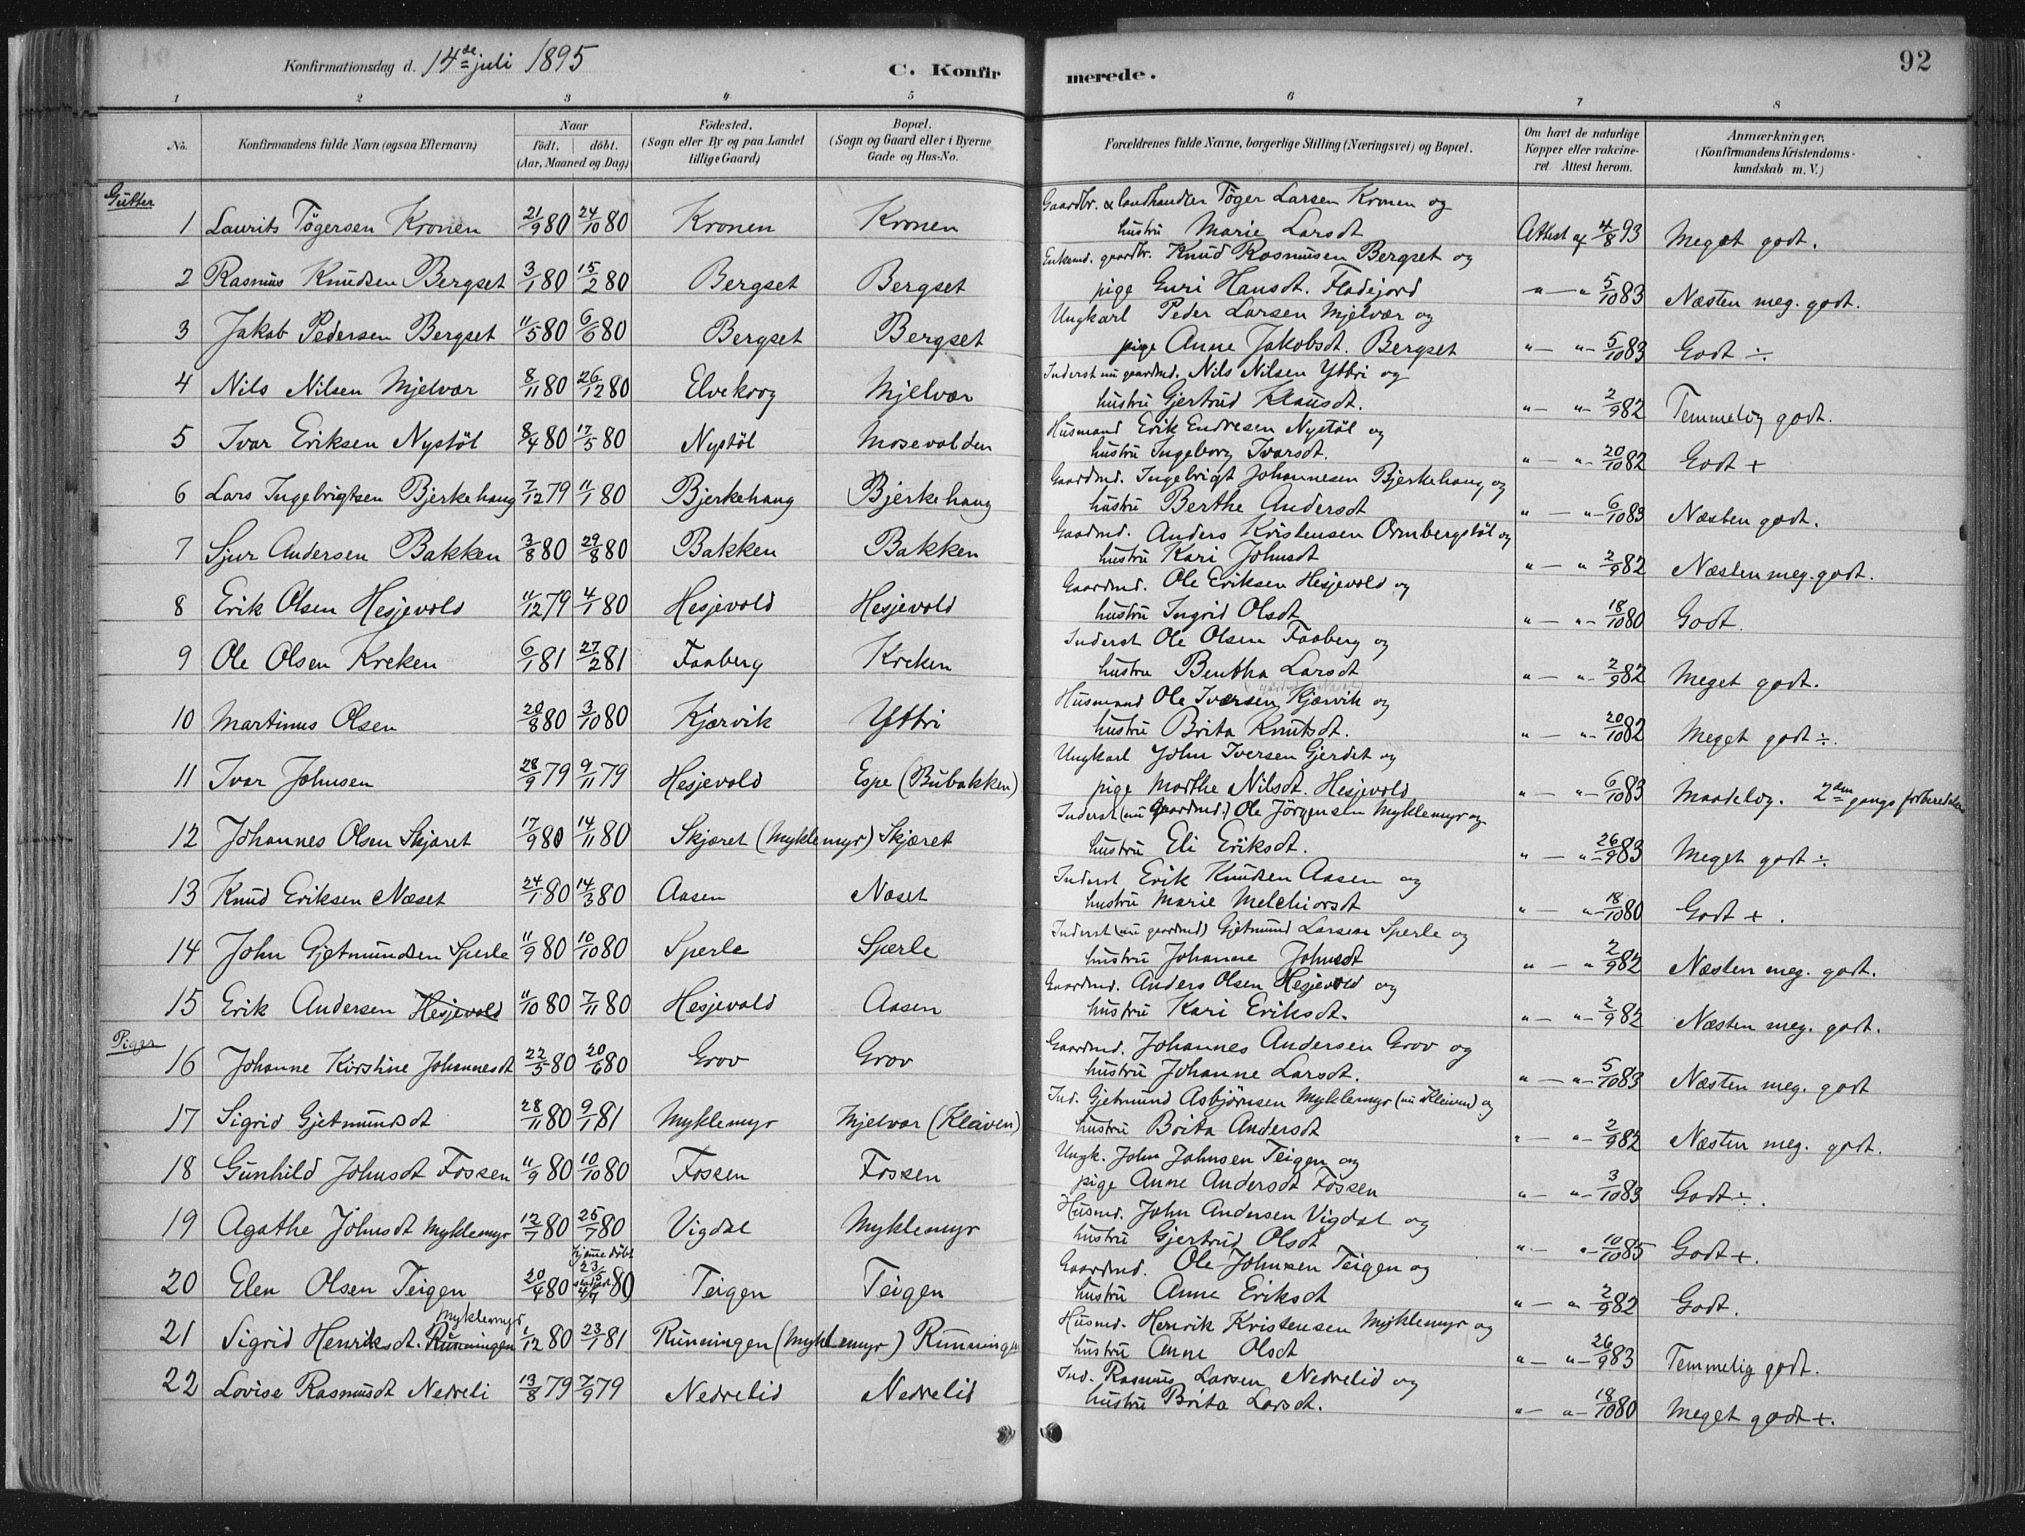 Konfirmationsdag d. 14de juli 1895
C. Konfir merede.
92
1 2 3 4 5 6 7 8
No. Konfirmandens fulde Navn (ogsaa Efternavn) Naar født. døbt. (Aar, Maaned og Dag) Fødested. (Sogn eller By og paa Landet tillige Gaard) Bopæl. (Sogn og Gaard eller i Byerne Gade og Hus-No. Forældrenes fulde Navne, borgerlige Stilling (Næringsvei) og Bopæl. Om havt de naturlige Kopper eller vakcineret. Attest herom. Anmærkninger. (Konfirmandens Kristendomskundskab m. V.)
Gutter
1 Laurits Tøgersen Kronen 21/9 80 24/10 80 Kronen Kronen Gaardbr. & landhandler Tøger Larsen Kronen og
hustru Marie Larsdt Attest af 4/8 93 Meget godt.
2 Rasmus Knudsen Bergset 3/1 80 15/2 80 Bergset Bergset Enkemd. gaardbr. Knud Rasmusen Bergset og
pige Guri Hansdt. Fladejord " — " 5/10 83 Næsten meg. godt.
3 Jakob Pedersen Bergset 11/5 80 6/6 80 Bergset Bergset Ungkarl Peder Larsen Mjelvær og
pige Anne Jakobsdt. Bergset " — " 5/10 83 Godt ÷
4 Nils Nilsen Mjelvær 8/11 80 26/12 80 Elvekrog Mjelvær Inderst nu gaardmd. Nils Nilsen Yttri og
hustru Gjertrud Klausdt. " — " 2/9 82 Temmelig godt.
5 Ivar Eriksen Nystøl 8/4 80 17/5 80 Nystøl Mosevolden Husmand Erik Endresen Nystøl og
hustru Ingeborg Ivarsdt. " — " 20/10 82 Godt +
6 Lars Ingebrigtsen Bjerkehaug 7/12 79 11/1 80 Bjerkehaug Bjerkehaug Gaardmd. Ingebrigt Johannesen Bjerkehaug og
hustru Berthe Andersdt " — " 6/10 83 Næsten godt.
7 Sjur Andersen Bakken 3/8 80 29/8 80 Bakken Bakken Gaardmd. Anders Kristensen Ormbergstøl og
hustru Kari Johnsdt " — " 2/9 82 Næsten meg. godt.
8 Erik Olsen Hesjevold 11/12 79 4/1 80 Hesjevold Hesjevold Gaardmd. Ole Eriksen Hesjevold og
hustru Ingrid Olsdt " — " 18/10 80 Godt.
9 Ole Olsen Kreken 6/1 81 27/2 81 Faaberg Kreken Inderst Ole Olsen Faaberg og
hustru Bentha Larsdt " — " 2/9 82 Meget godt.
10 Martinus Olsen 20/8 80 3/10 80 Kjærvik Yttri Husmand Ole Iversen Kjærvik og
hustru Brita Knutsdt. " — " 20/10 82 Meget godt ÷.
11 Ivar Johnsen 28/9 79 9/11 79 Hesjevold Espe (Bubakken) Ungkarl John Iversen Gjerdet og
pige Marthe Nilsdt. Hesjevold " — " 6/10 83 Maadelig. 2den gangs forberedelse
12 Johannes Olsen Skjæret 17/9 80 14/11 80 Skjæret (Myklemyr) Skjæret Inderst (nu Gaardmd.) Ole Jørgensen Myklemyr og
hustru Eli Eriksdt. " — " 26/9 83 Meget godt ÷
13 Knud Eriksen Næset 24/1 80 14/3 80 Aasen Næset Inderst Erik Knudsen Aasen og
hustru Marie Melchiorsdt " — " 18/10 80 Godt +.
14 John Gjetmundsen Sperle 11/9 80 10/10 80 Sperle Sperle Inderst (nu gaardmd) Gjetmund Larsen Sperle og
hustru Johanne Johnsdt " — " 2/9 82 Næsten meg. godt.
15 Erik Andersen Hesjevold 11/10 80 7/11 80 Hesjevold Aasen Gaardmd. Anders Olsen Hesjevold og
hustru Kari Eriksdt. " — " 2/9 82 Næsten meg. godt.
Piger
16 Johanne Kirstine Johannesdt 22/5 80 20/6 80 Grov Grov Gaardmd. Johannes Andersen Grov og
hustru Johanne Larsdt. " — " 5/10 83 Næsten meg. godt
17 Sigrid Gjetmundsdt 28/11 80 9/1 81 Myklemyr Mjelvær (Kleiven) Ind. Gjetmund Asbjørnsen Myklemyr (nu Kleiven) og
hustru Brita Andersdt " — " 2/9 82 Næsten meg. godt.
18 Gunhild Johnsdt Fossen 11/9 80 10/10 80 Fossen Fossen Ungk. John Johnsen Teigen og
pige Anne Andersdt Fossen " — " 3/10 83 Godt ÷.
19 Agathe Johnsdt Myklemyr 12/7 80 25/7 80 Vigdal Myklemyr Husmd. John Andersen Vigdal og
hustru Gjertrud Olsdt " — " 10/10 85 Godt +.
20 Elen Olsen Teigen 20/4 80 hjemedøbt 23/5 stadfæst 4/7 80 Teigen Teigen Gaardmd. Ole Johnsen Teigen og
hustru Anne Eriksdt " — " 2/9 82 Godt.
21 Sigrid Henriksdt. Runningen Myklemyr 1/12 80 23/1 81 Runningen (Myklemyr) Runningen Husmd. Henrik Kristensen Myklemyr og
hustru Anne Olsdt " — " 26/9 83 Temmelig godt.
22 Lovise Rasmusdt Nedreli 13/8 79 7/9 79 Nedrelid Nedrelid Ind. Rasmus Larsen Nedrelid og
hustru Brita Larsdt. " — " 18/10 80 Meget godt +.